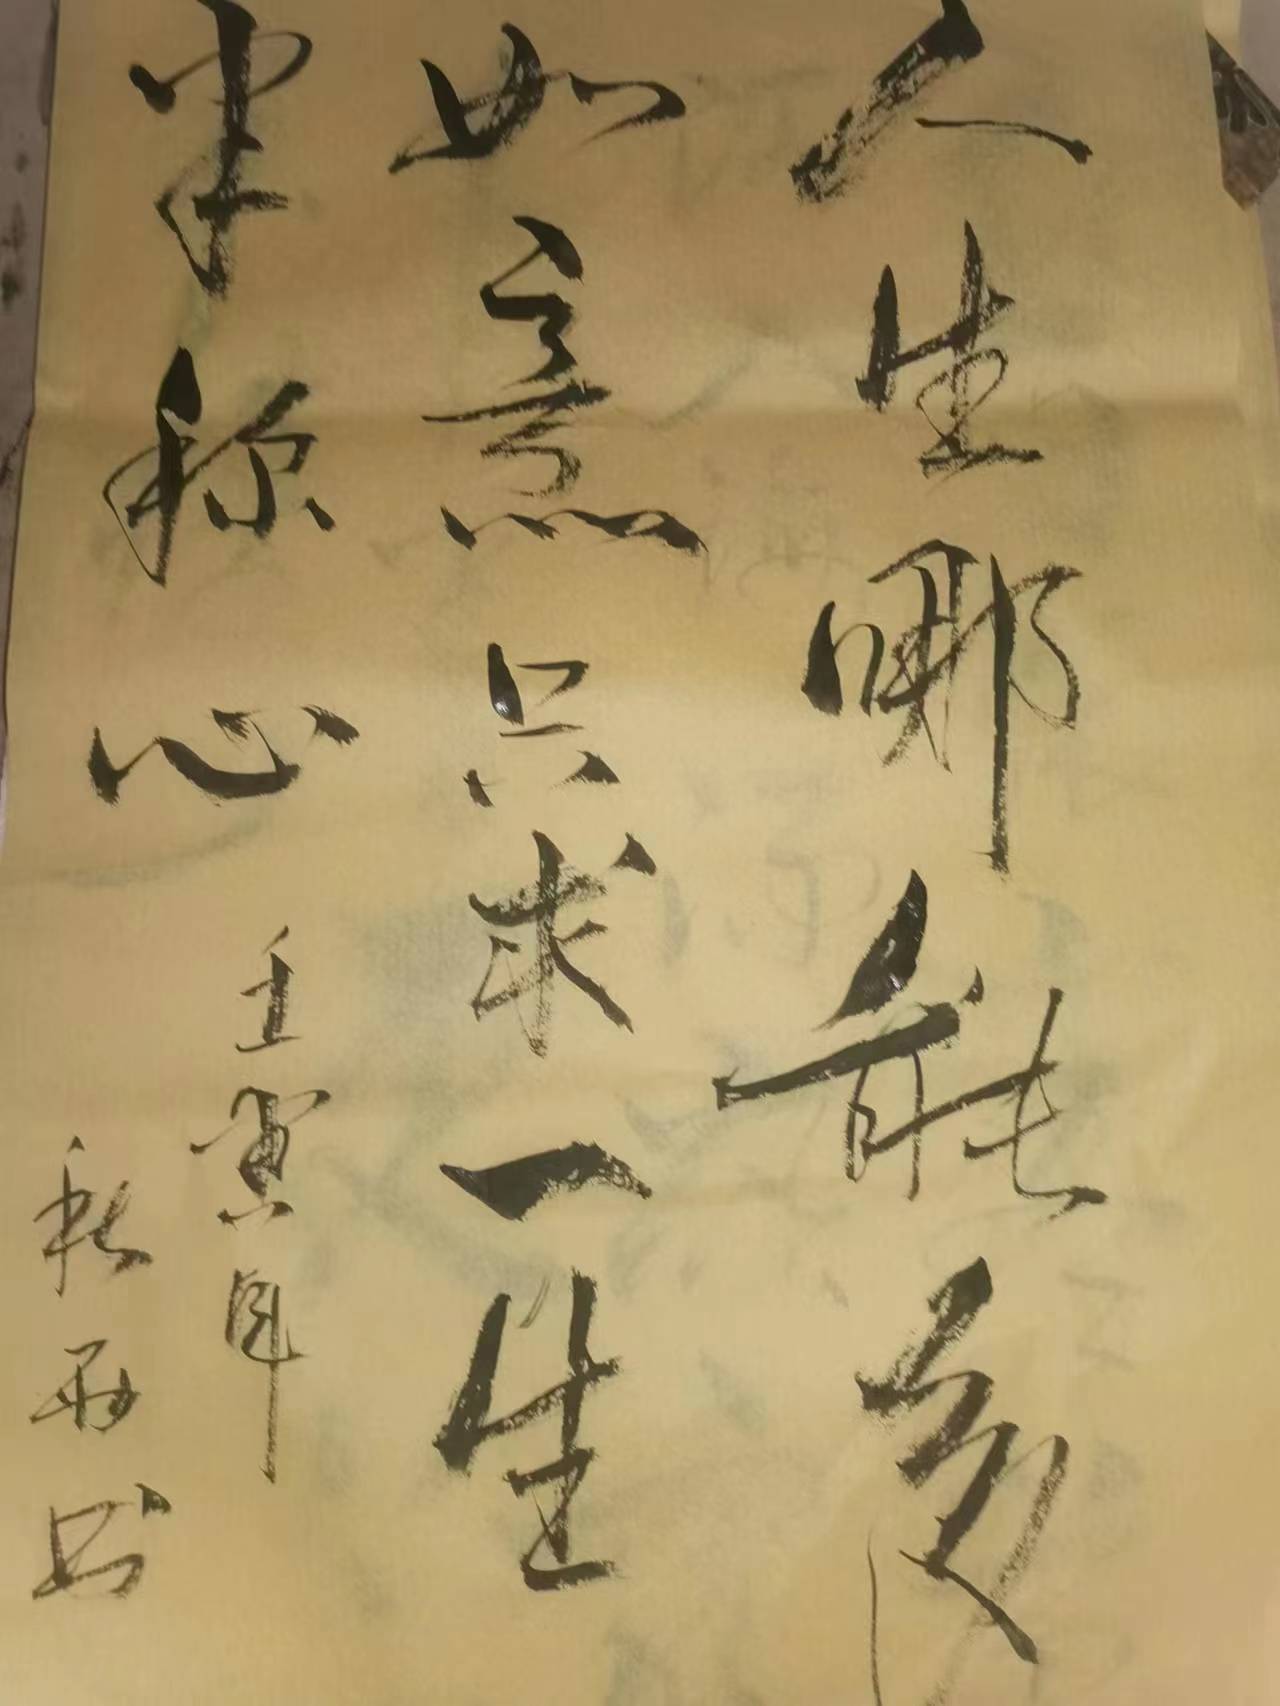 人生哪能多
如意只求一生
半称心
壬寅年
秋书